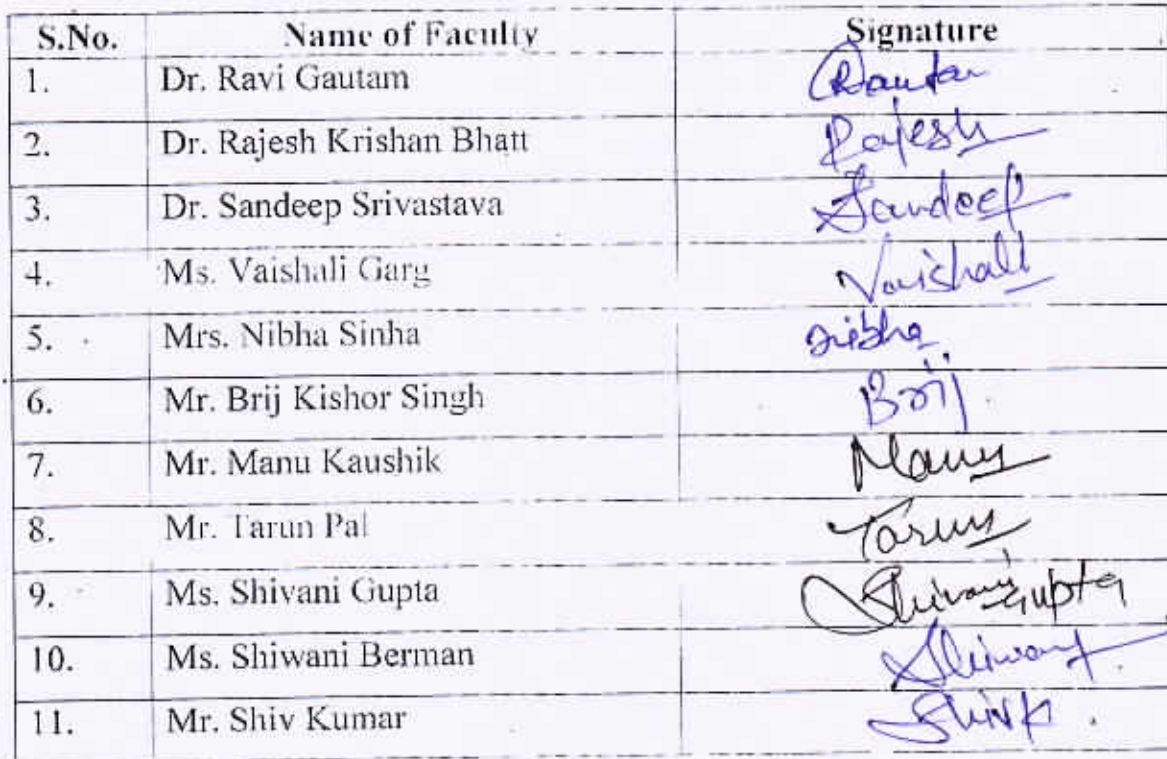 S.No. Name of Faculty Signature
1. Dr. Ravi Gautam Gautam
2. Dr. Rajesh Krishan Bhatt Rajesh
3. Dr. Sandeep Srivastava Sandeep
4. Ms. Vaishali Garg Vaishali
5. Mrs. Nibha Sinha Nibha
6. Mr. Brij Kishor Singh Brij
7. Mr. Manu Kaushik Manu
8. Mr. Tarun Pal Tarun
9. Ms. Shivani Gupta Shivani Gupta
10. Ms. Shiwani Berman Shiwani
11. Mr. Shiv Kumar ShivK.